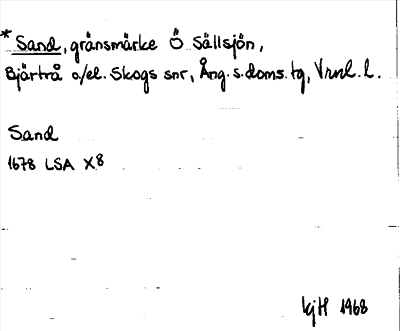 * Sand, gränsmärke Ö Sällsjön,
Bjärtrå o/el. Skogs snr, Ång.s.doms.tg, Vrnl. l.
Sand
1678 LSA X8
kjH 1968